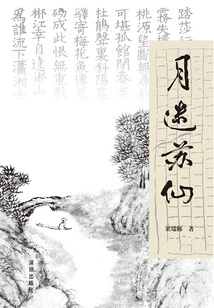 踏莎行
霧失
桃源望斷
可堪孤館閉春寒
杜鵑聲裏斜
驛寄梅花魚傳
砌成此恨無重數
郴江幸自遶郴山
爲誰流下瀟湘去
月迷苏仙
梁瑞郴 著
深圳出版社